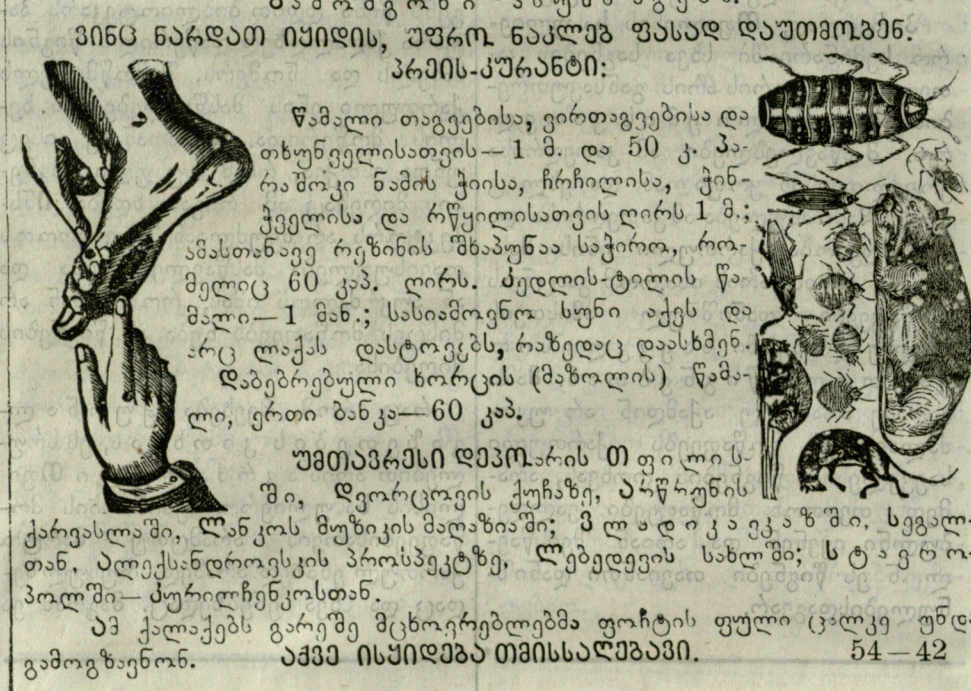 ვინც ნარდათ იყიდის, უფრო ნაკლებ ფასად დაუთმობენ.
პრეის-კურანტი:
წამალი თაგვებისა, ვირთაგვებისა და
თხუნველისათვის—1 მ. და 50 კ. პა-
რაშოკი ნამის ჭიისა, ჩრჩილისა, ჭინ-
ჭველისა და რწყილისათვის ღირს 1 მ.;
ამასთანავე რეზინის შხაპუნაა საჭირო, რო-
მელიც 60 კაპ. ღირს. კედლის-ტილის წა-
მალი—1 მან.; სასიამოვნო სუნი აქვს და
არც ლაქას დასტოვებს, რაზედაც დაასხმენ.
დაბებრებული ხორცის (მაზოლის) წამა-
ლი, ერთი ბანკა—60 კაპ.
უმთავრესი დეპო არის თფილის-
ში, დვორცოვის ქუჩაზე, არწრუნის
ქარვასლაში, ლანკოს მუზიკის მაღაზიაში; ვლადიკავკაზში, სეგალ-
თან, ალექსანდროვსკის პროსპექტზე, ლებედევის სახლში; სტავრო-
პოლში—კურილჩენკოსთან.
ამ ქალაქებს გარეშე მცხოვრებლებმა ფოჩტის ფული ცალკე უნდა
გამოგზავნონ. აქვე ისყიდება თმისსაღებავი. 54—42